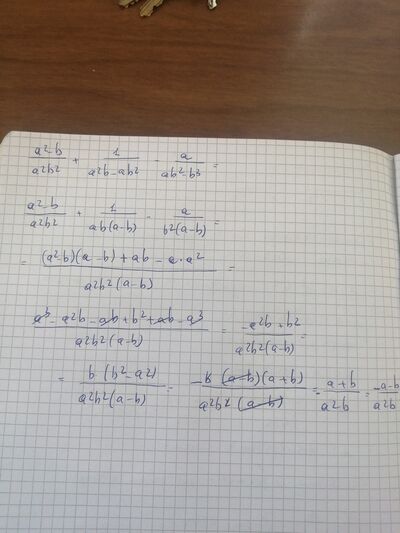 a²-b/a²b² + 1/a²b-ab² - a/ab²-b³ =
a²-b/a²b² + 1/ab(a-b) - a/b²(a-b) =
= (a²-b)(a-b)+ab-a·a²/a²b²(a-b) =
a³-a²b-ab+b²+ab-a³/a²b²(a-b) = -a²b+b²/a²b²(a-b) =
= b(b²-a²)/a²b²(a-b) = -b(a-b)(a+b)/a²b²(a-b) = -a+b/a²b = -a-b/a²b